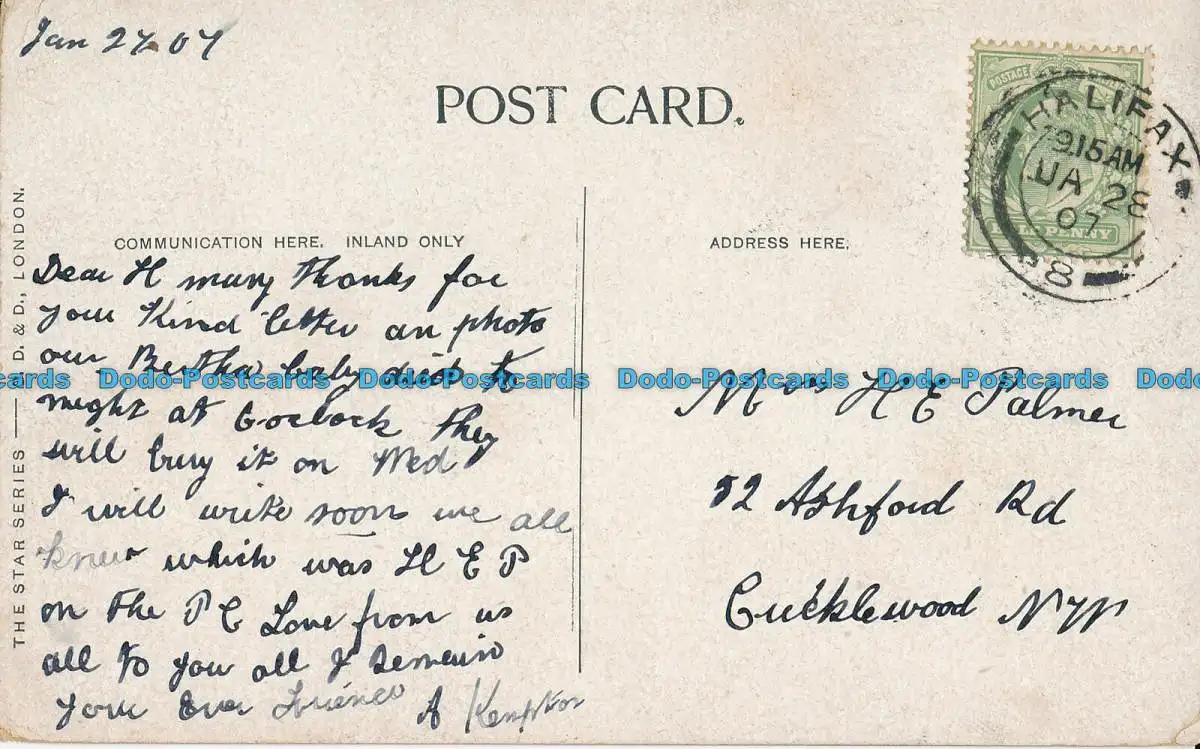 Jan 27 07
POST CARD.
POSTAGE
HALIFAX
9.15 AM
JA 28
07
PENNY
8
COMMUNICATION HERE. INLAND ONLY
ADDRESS HERE.
THE STAR SERIES — G. D. & D., LONDON.
Dear H many thanks for
your Kind letter an photo
our Bertha baby died to
night at 6 oclock they
will bury it on Wed
I will write soon we all
knew which was H E P
on the P C Love from us
all to you all I Remain
your Ever A Kempton
Dodo-Postcards Dodo-Postcards Dodo-Postcards Dodo-Postcards Dodo
H E Palmer
52 Ashford Rd
Cricklewood NW